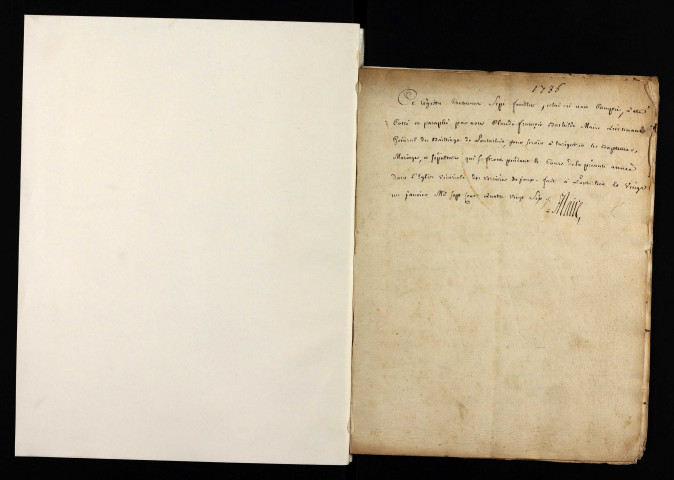 1786
Ce Registre Contenant Sept feuillets, celui ci non Compris, a été
Cotté et paraphé par nous Claude François Maire Lieutenant
Général du Bailliage de Pontarlier, pour servir à enregistrer les Baptemes,
Mariages, et sépultures qui se feront pendant le Cours de la présente année
dans l'Eglise des fait à Pontarlier le Vingt
un janvier Mil sept cent quatre vingt Six
Maire